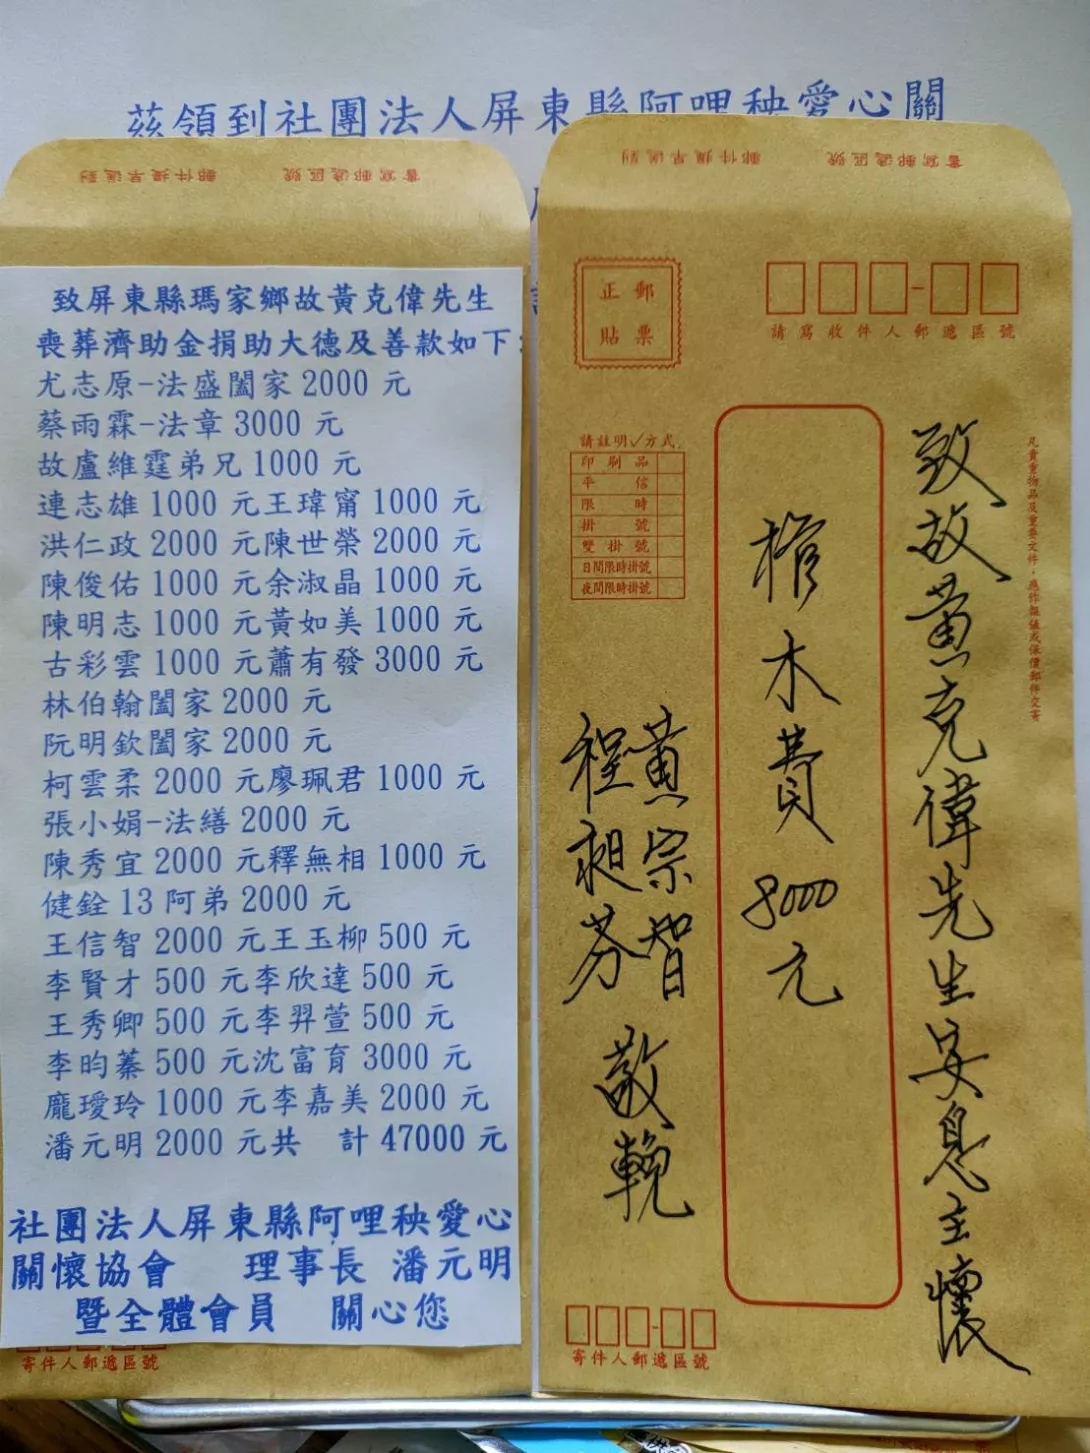 茲領到社團法人屏東縣阿哩秧愛心關
郵件提早遞到
書寫郵遞區號
致屏東縣瑪家鄉故黃克偉先生
喪葬濟助金捐助大德及善款如下:
尤志原-法盛闔家 2000 元
蔡雨霖-法章 3000 元
故盧維霆弟兄 1000 元
連志雄 1000 元王瑋甯 1000 元
洪仁政 2000 元陳世榮 2000 元
陳俊佑 1000 元余淑晶 1000 元
陳明志 1000 元黃如美 1000 元
古彩雲 1000 元蕭有發 3000 元
林伯翰闔家 2000 元
阮明欽闔家 2000 元
柯雲柔 2000 元廖珮君 1000 元
張小娟-法繕 2000 元
陳秀宜 2000 元釋無相 1000 元
健銓 13 阿弟 2000 元
王信智 2000 元王玉柳 500 元
李賢才 500 元李欣達 500 元
王秀卿 500 元李羿萱 500 元
李昀蓁 500 元沈富育 3000 元
龐瓊玲 1000 元李嘉美 2000 元
潘元明 2000 元共 計 47000 元
社團法人屏東縣阿哩秧愛心
關懷協會 理事長 潘元明
暨全體會員 關心您
寄件人郵遞區號
郵件提早遞到
書寫郵遞區號
正郵
貼票
請寫收件人郵遞區號
請註明✓方式
印刷品
平信
限時
掛號
雙掛號
日間限時掛號
夜間限時掛號
凡貴重物品及重要文件,應作報值或保價郵件交寄
致故黃克偉先生安息主懷
棺木費 8000 元
黃宗智
程昶芬 敬輓
寄件人郵遞區號